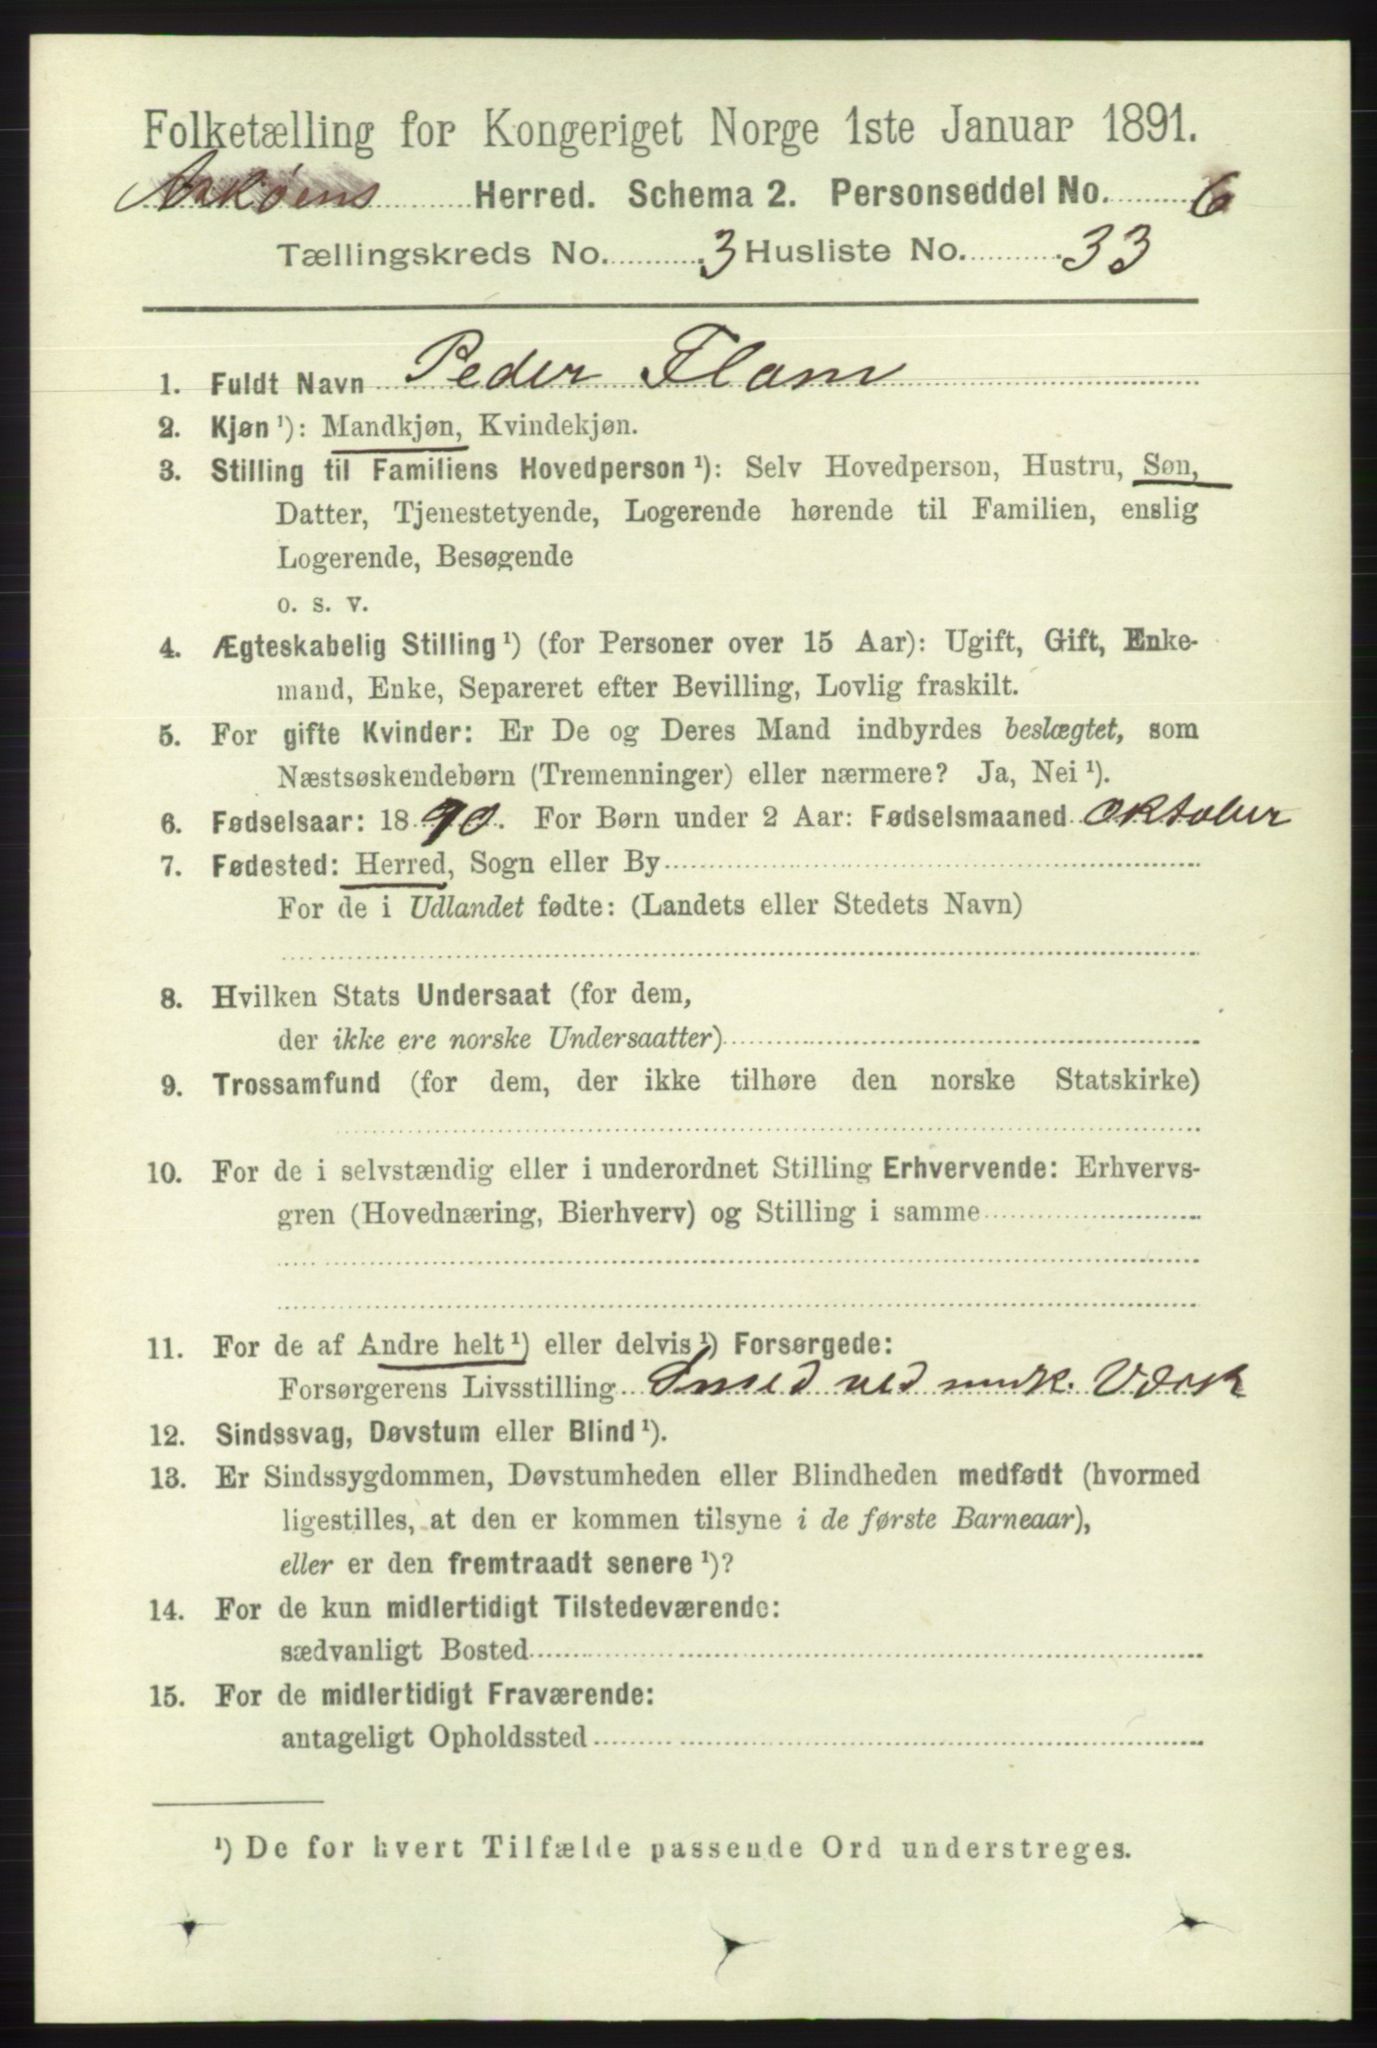 Folketælling for Kongeriget Norge 1ste Januar 1891.
Askøens Herred. Schema 2. Personseddel No. 6
Tællingskreds No. 3 Husliste No. 33
1. Fuldt Navn Peder Flam
2. Kjøn ¹): Mandkjøn, Kvindekjøn.
3. Stilling til Familiens Hovedperson ¹): Selv Hovedperson, Hustru, Søn,
Datter, Tjenestetyende, Logerende hørende til Familien, enslig
Logerende, Besøgende
o. s. v.
4. Ægteskabelig Stilling ¹) (for Personer over 15 Aar): Ugift, Gift, Enke-
mand, Enke, Separeret efter Bevilling, Lovlig fraskilt.
5. For gifte Kvinder: Er De og Deres Mand indbyrdes beslægtet, som
Næstsøskendebørn (Tremenninger) eller nærmere? Ja, Nei ¹).
6. Fødselsaar: 1890. For Børn under 2 Aar: Fødselsmaaned Oktober
7. Fødested: Herred, Sogn eller By
For de i Udlandet fødte: (Landets eller Stedets Navn)
8. Hvilken Stats Undersaat (for dem,
der ikke ere norske Undersaatter)
9. Trossamfund (for dem, der ikke tilhøre den norske Statskirke)
10. For de i selvstændig eller i underordnet Stilling Erhvervende: Erhvervs-
gren (Hovednæring, Bierhverv) og Stilling i samme
11. For de af Andre helt ¹) eller delvis ¹) Forsørgede:
Forsørgerens Livsstilling Smed ved mek. Værk
12. Sindssvag, Døvstum eller Blind ¹).
13. Er Sindssygdommen, Døvstumheden eller Blindheden medfødt (hvormed
ligestilles, at den er kommen tilsyne i de første Barneaar),
eller er den fremtraadt senere ¹)?
14. For de kun midlertidigt Tilstedeværende:
sædvanligt Bosted
15. For de midlertidigt Fraværende:
antageligt Opholdssted
¹) De for hvert Tilfælde passende Ord understreges.